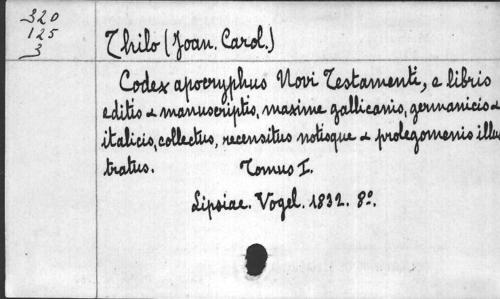 320
125
3
Thilo (Joan. Carol.)
Codex apocryphus Novi Testamenti, e libris
editis & manuscriptis, maxime gallicanis, germanicis &
italicis, collectus, recensitus notisque & prolegomenis illus
tratus. Tomus I.
Lipsiae. Vogel. 1832. 8º.